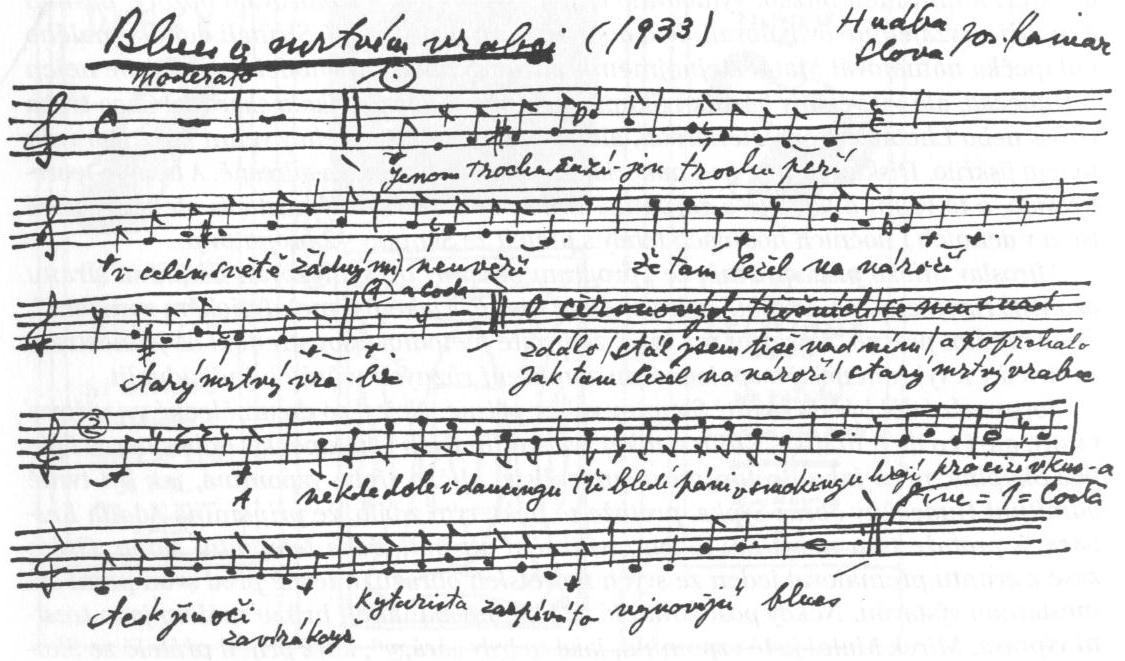 Blues o mrtvém vrabci (1933) Hudba
Slova Jos. Kainar
Moderato
1
Jenom trochu leží - jen trochu peří
v celém světě zármými není - leží že tam ležel na nároží
1 a Coda O červených třešních se mu snad
zdálo / stál jsem tiše nad ním / a poprchalo
starý mrtvý vra-bec Jak tam ležel na nároží / starý mrtvý vrabec
2
A někde dole v dancingu tři bledí páni v smokingu hrají pro cizí vkus - a
Fine = 1 = Coda
teskný mi oči kytarista zazpívá to nejnovější blues
zavírá když